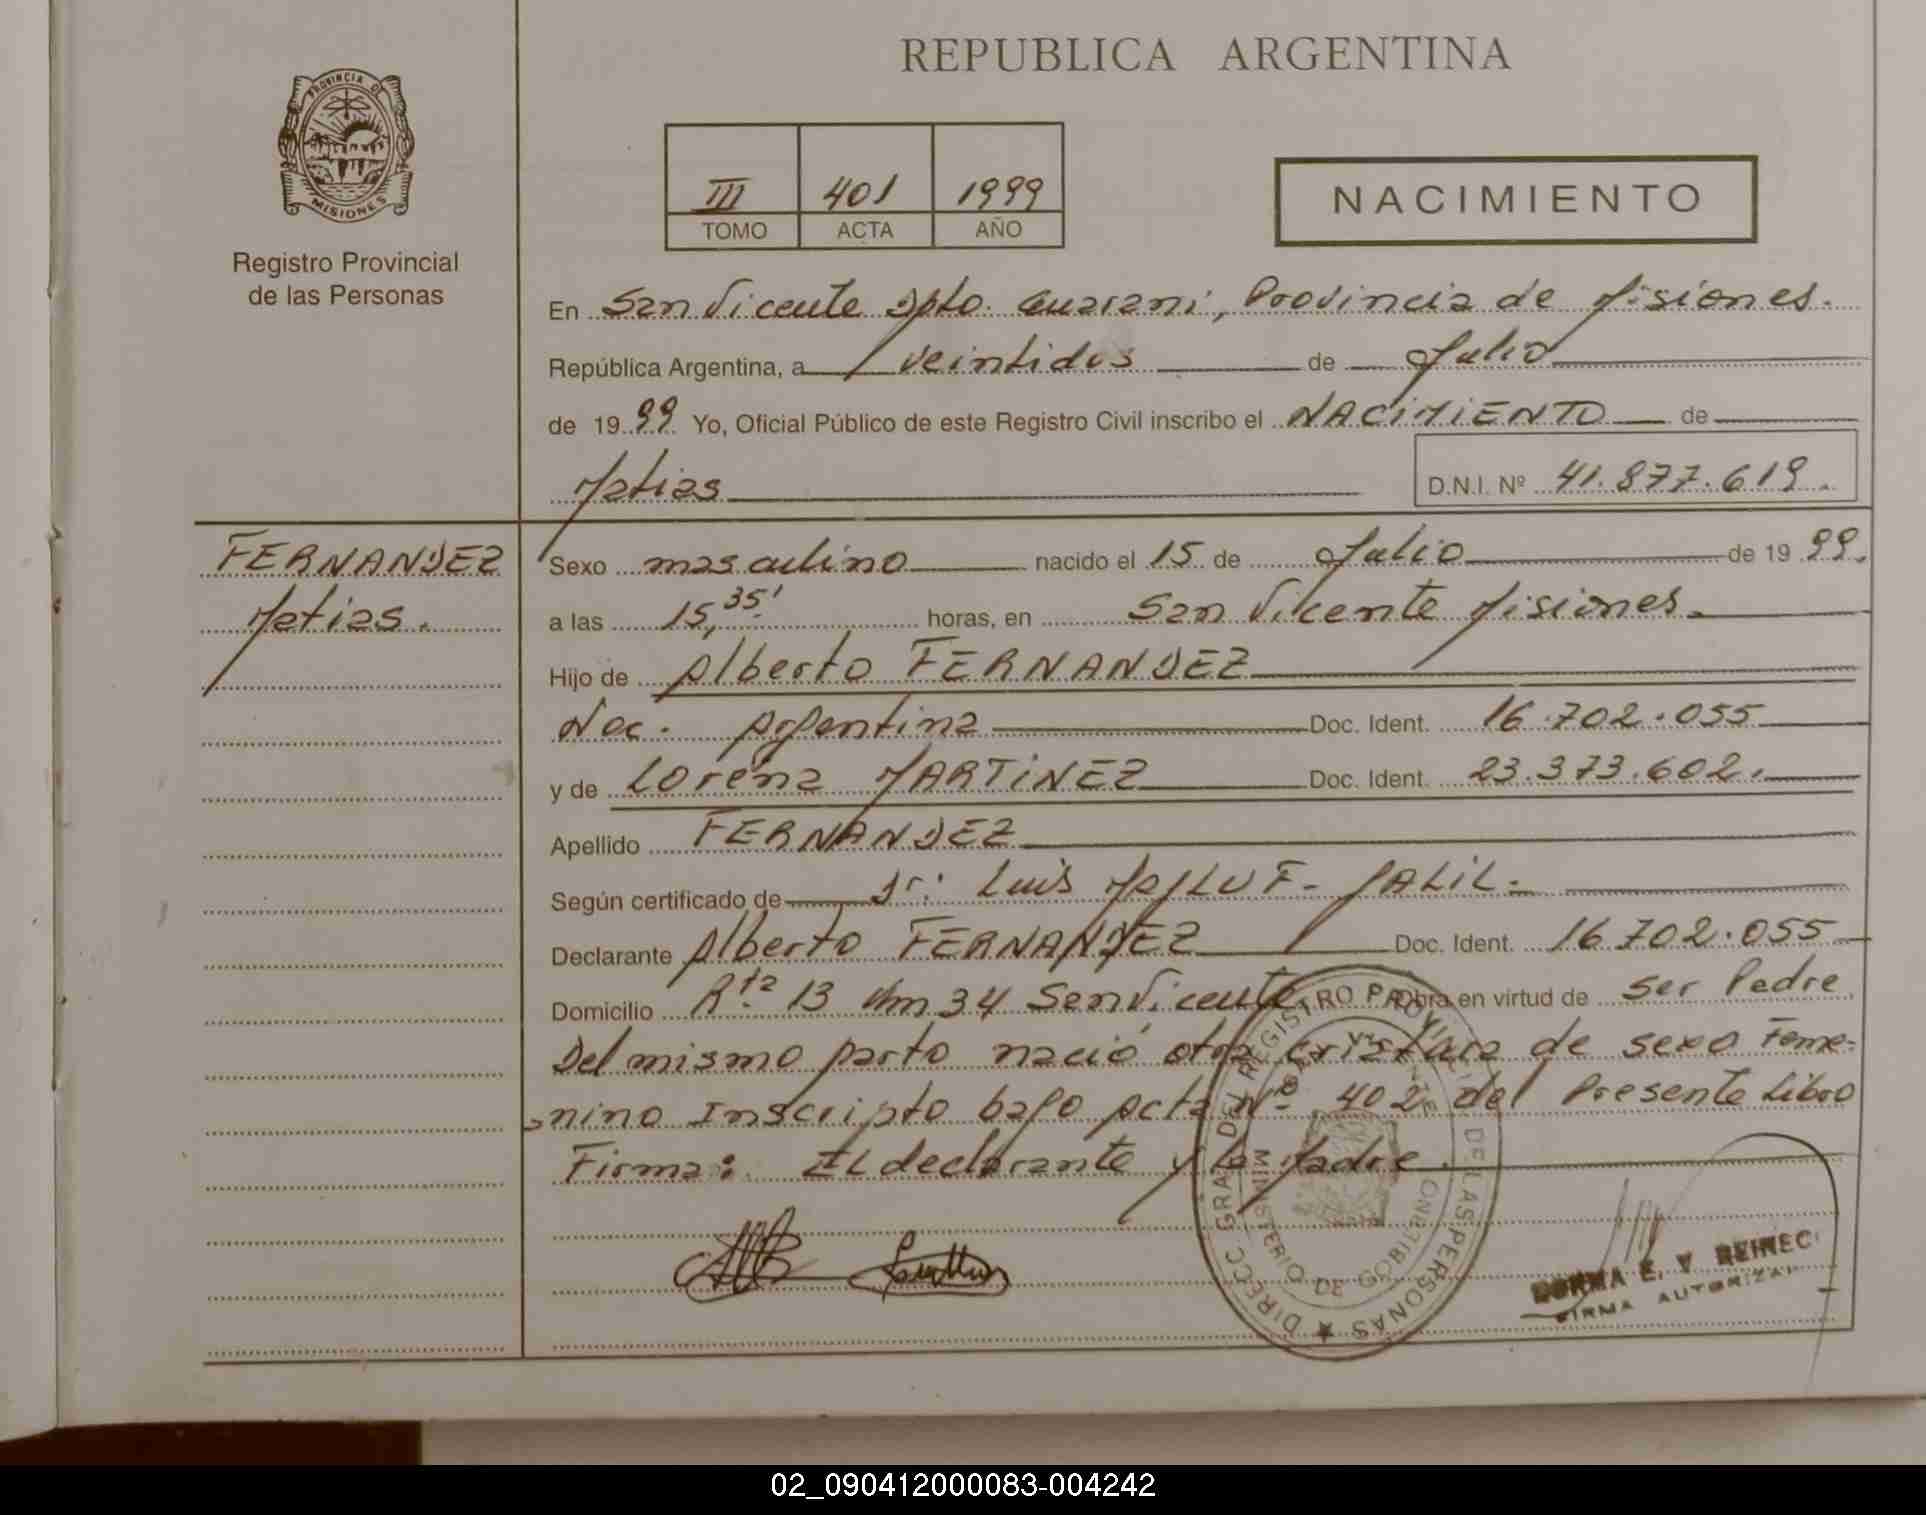 REPUBLICA ARGENTINA
PROVINCIA DE
MISIONES
Registro Provincial
de las Personas
III 401 1999
TOMO ACTA AÑO
NACIMIENTO
En San Vicente Dpto. Guarani, Provincia de Misiones.
República Argentina, a veintidos de Julio
de 1999 Yo, Oficial Público de este Registro Civil inscribo el NACIMIENTO de
Matias D.N.I. Nº 41.877.619.
FERNANDEZ
Matias.
Sexo masculino nacido el 15 de Julio de 1999.
a las 15,35' horas, en San Vicente Misiones.
Hijo de Alberto FERNANDEZ
Nac. Argentina Doc. Ident. 16.702.055
y de Lorena MARTINEZ Doc. Ident. 23.373.602.
Apellido FERNANDEZ
Según certificado de Dr: Luis MALUF- JALIL.
Declarante Alberto FERNANDEZ Doc. Ident. 16.702.055
Domicilio Rta 13 Km 34 San Vicente Obra en virtud de ser Padre
Del mismo parto nació otra criatura de sexo Feme-
nino Inscripto bajo Acta Nº 402 del Presente Libro
Firma: El declarante y la Madre.
DIRECC. GRAL. DEL REGISTRO PROVINCIAL DE LAS PERSONAS
MINISTERIO DE GOBIERNO
SAN VICENTE
NORMA E. V. REINEC
FIRMA AUTORIZA
02_090412000083-004242